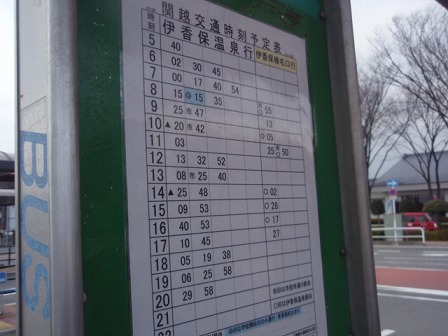 関越交通時刻予定表
時刻 伊香保温泉行 伊香保榛名口行
5 40
6 02 30 45
7 00 17 40 54
8 15 15 35
9 25 市47 05
10 ▲20 市42 13
11 03 ○05
12 13 32 52 25 50
13 08 市25 40
14 ▲25 48 ○02
15 09 53 ○28
16 40 53 ○17
17 10 45 27
18 05 19 38
19 06 25 58
20 29 58
21
22
BUS